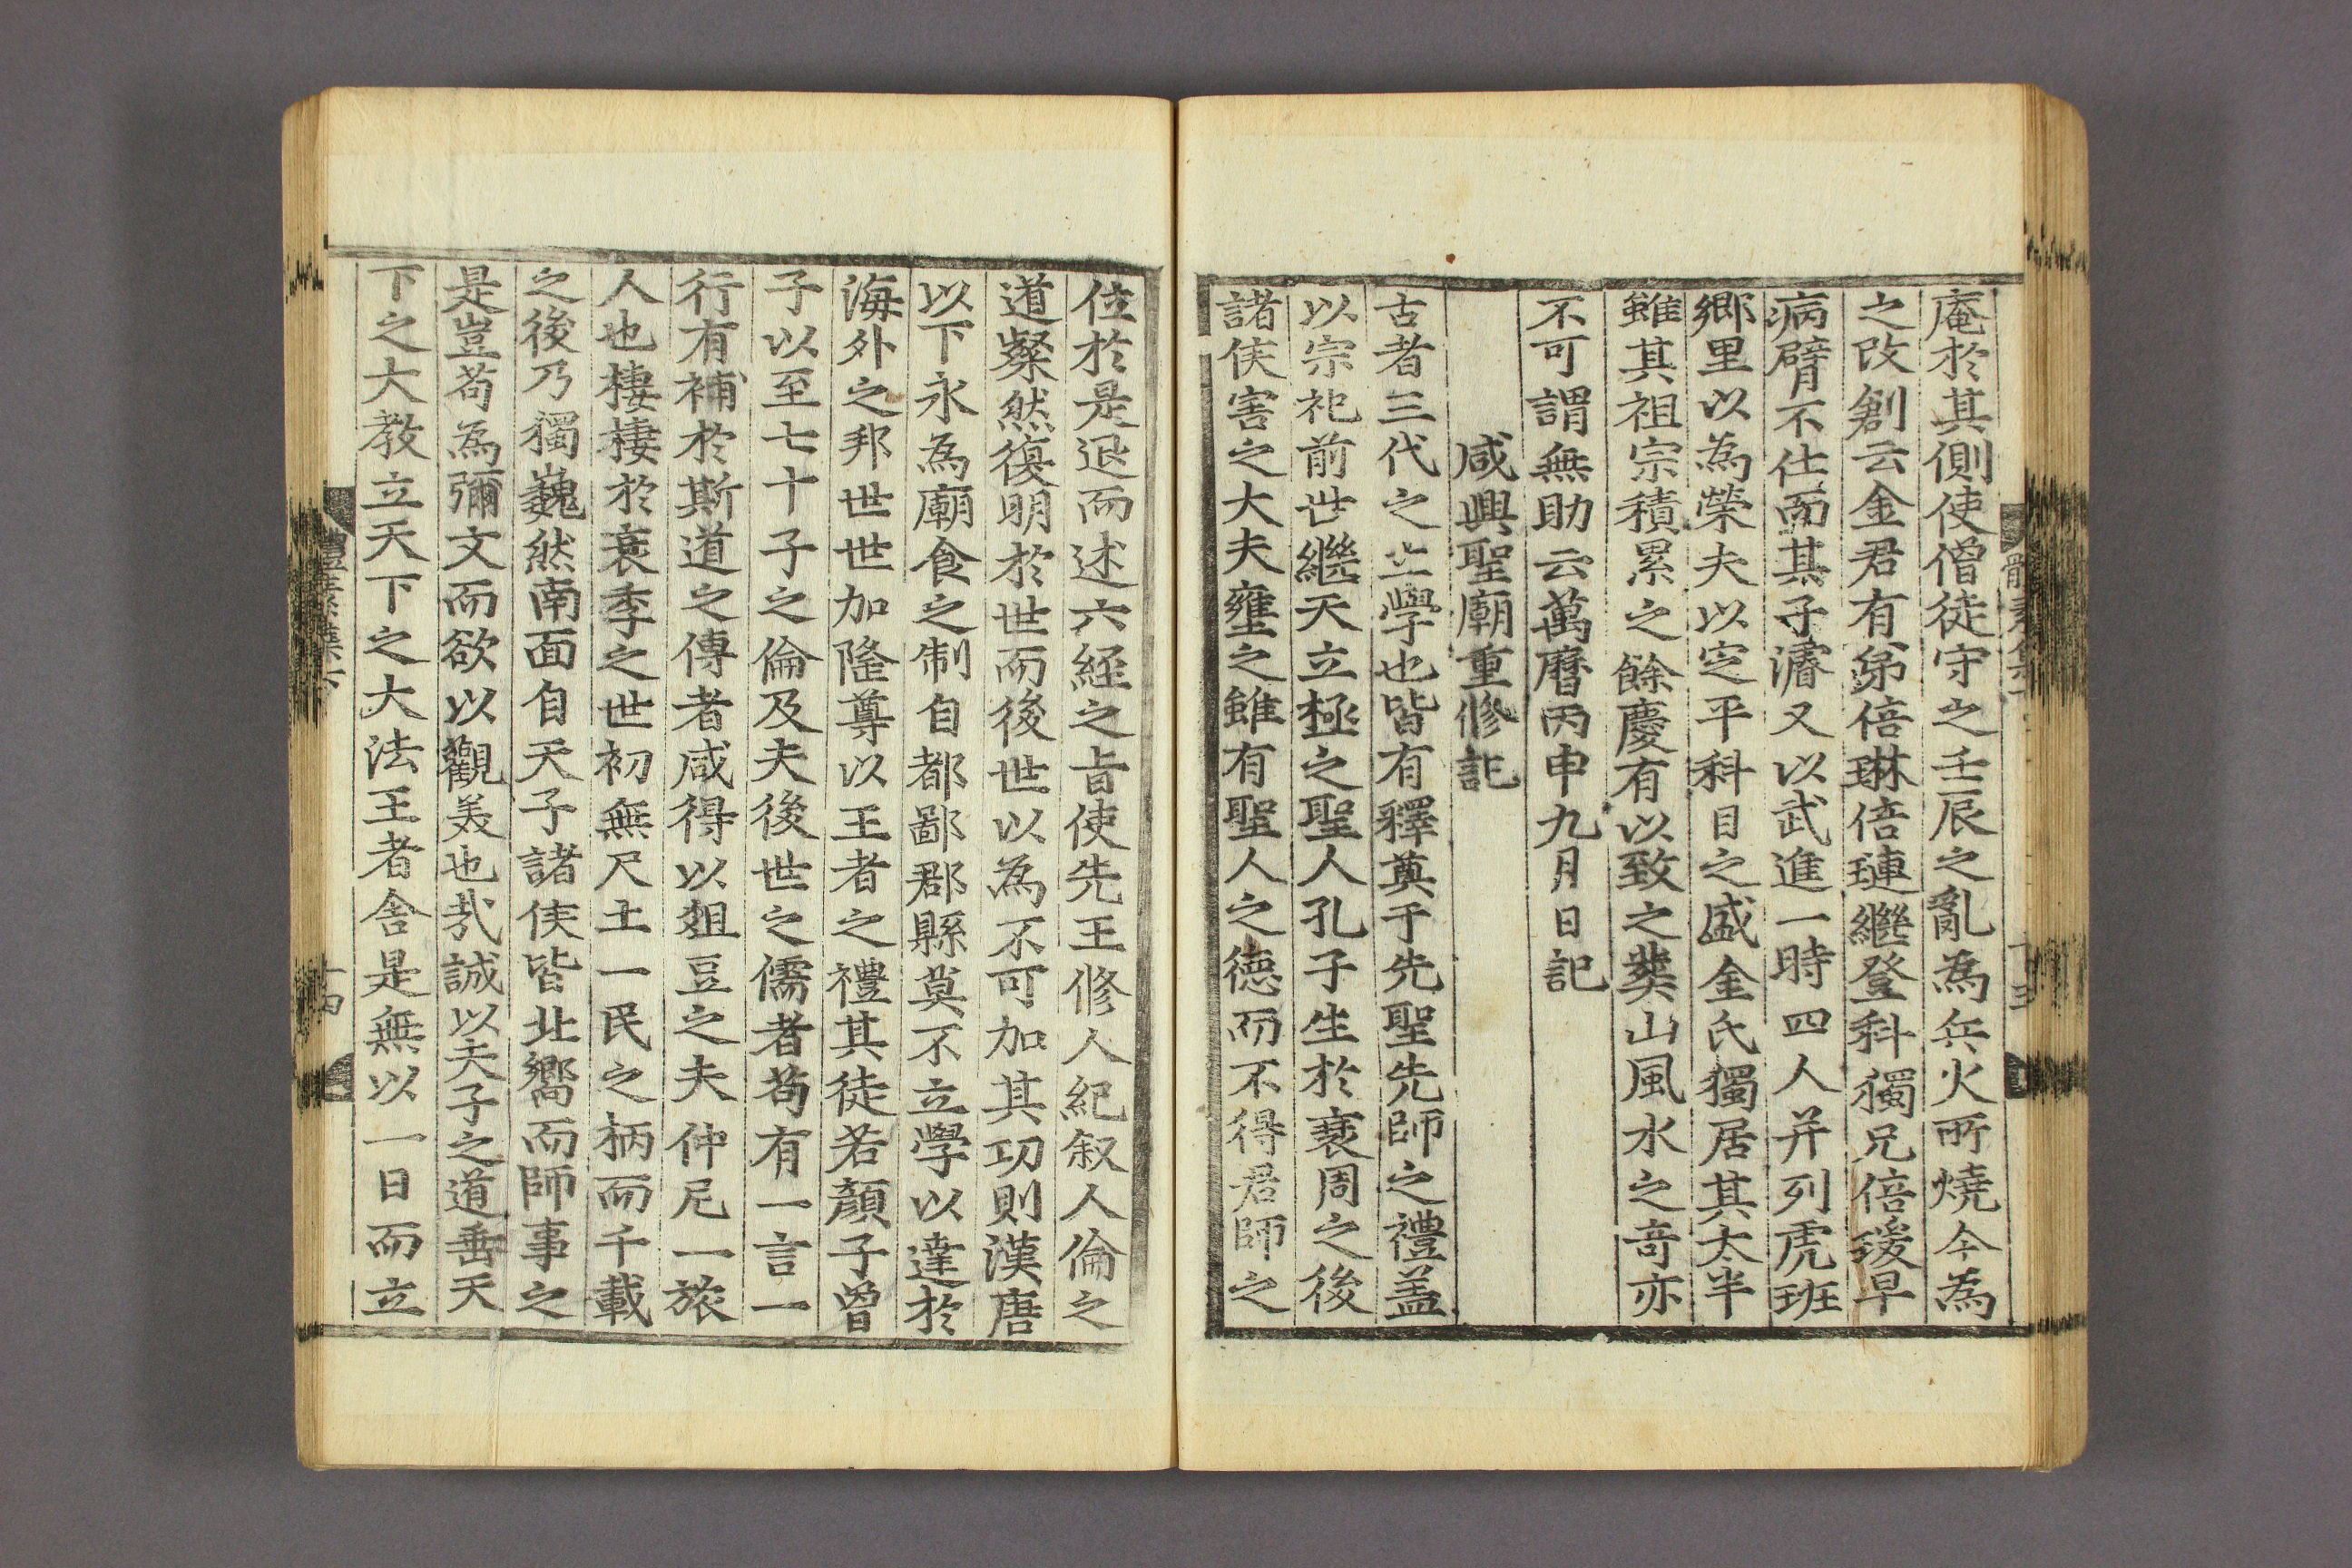 庵於其側使僧徒守之壬辰之亂為兵火所燒今為
之改創云金君有弟倍琳倍璉繼登科獨兄倍瑗早
病臂不仕而其子濬又以武進一時四人并列虎班
鄉里以為榮夫以定平科目之盛金氏獨居其太半
雖其祖宗積累之餘慶有以致之葬山風水之奇亦
不可謂無助云萬曆丙申九月日記
咸興聖廟重修記
古者三代之學也皆有釋奠于先聖先師之禮盖
以宗祀前世繼天立極之聖人孔子生於衰周之後
諸侯害之大夫壅之雖有聖人之德而不得君師之
位於是退而述六経之旨使先王修人紀叙人倫之
道粲然復明於世而後世以為不可加其功則漢唐
以下永為廟食之制自都鄙郡縣莫不立學以達於
海外之邦世世加隆尊以王者之禮其徒若顏子曾
子以至七十子之倫及夫後世之儒者苟有一言一
行有補於斯道之傳者咸得以俎豆之夫仲尼一旅
人也棲棲於衰季之世初無尺土一民之柄而千載
之後乃獨巍然南面自天子諸侯皆北嚮而師事之
是豈苟為彌文而欲以觀美也㢤誠以夫子之道垂天
下之大教立天下之大法王者舍是無以一日而立